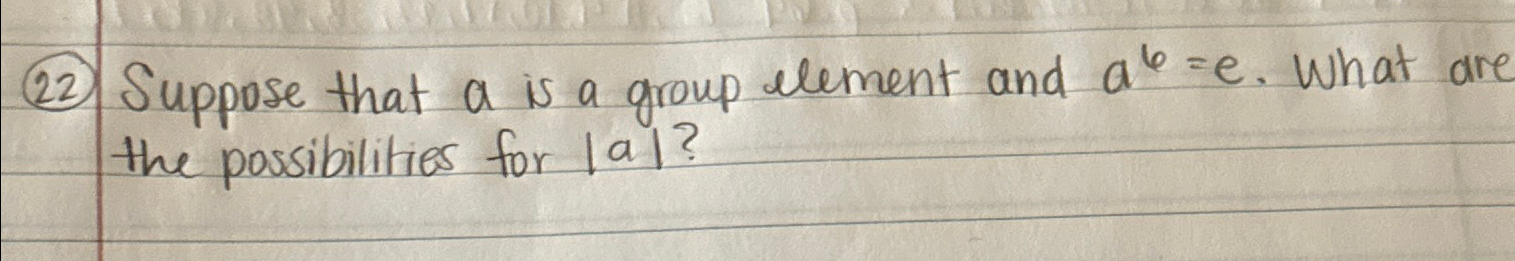 22 Suppose that a is a group element and a⁶ = e. What are
the possibilities for |a|?